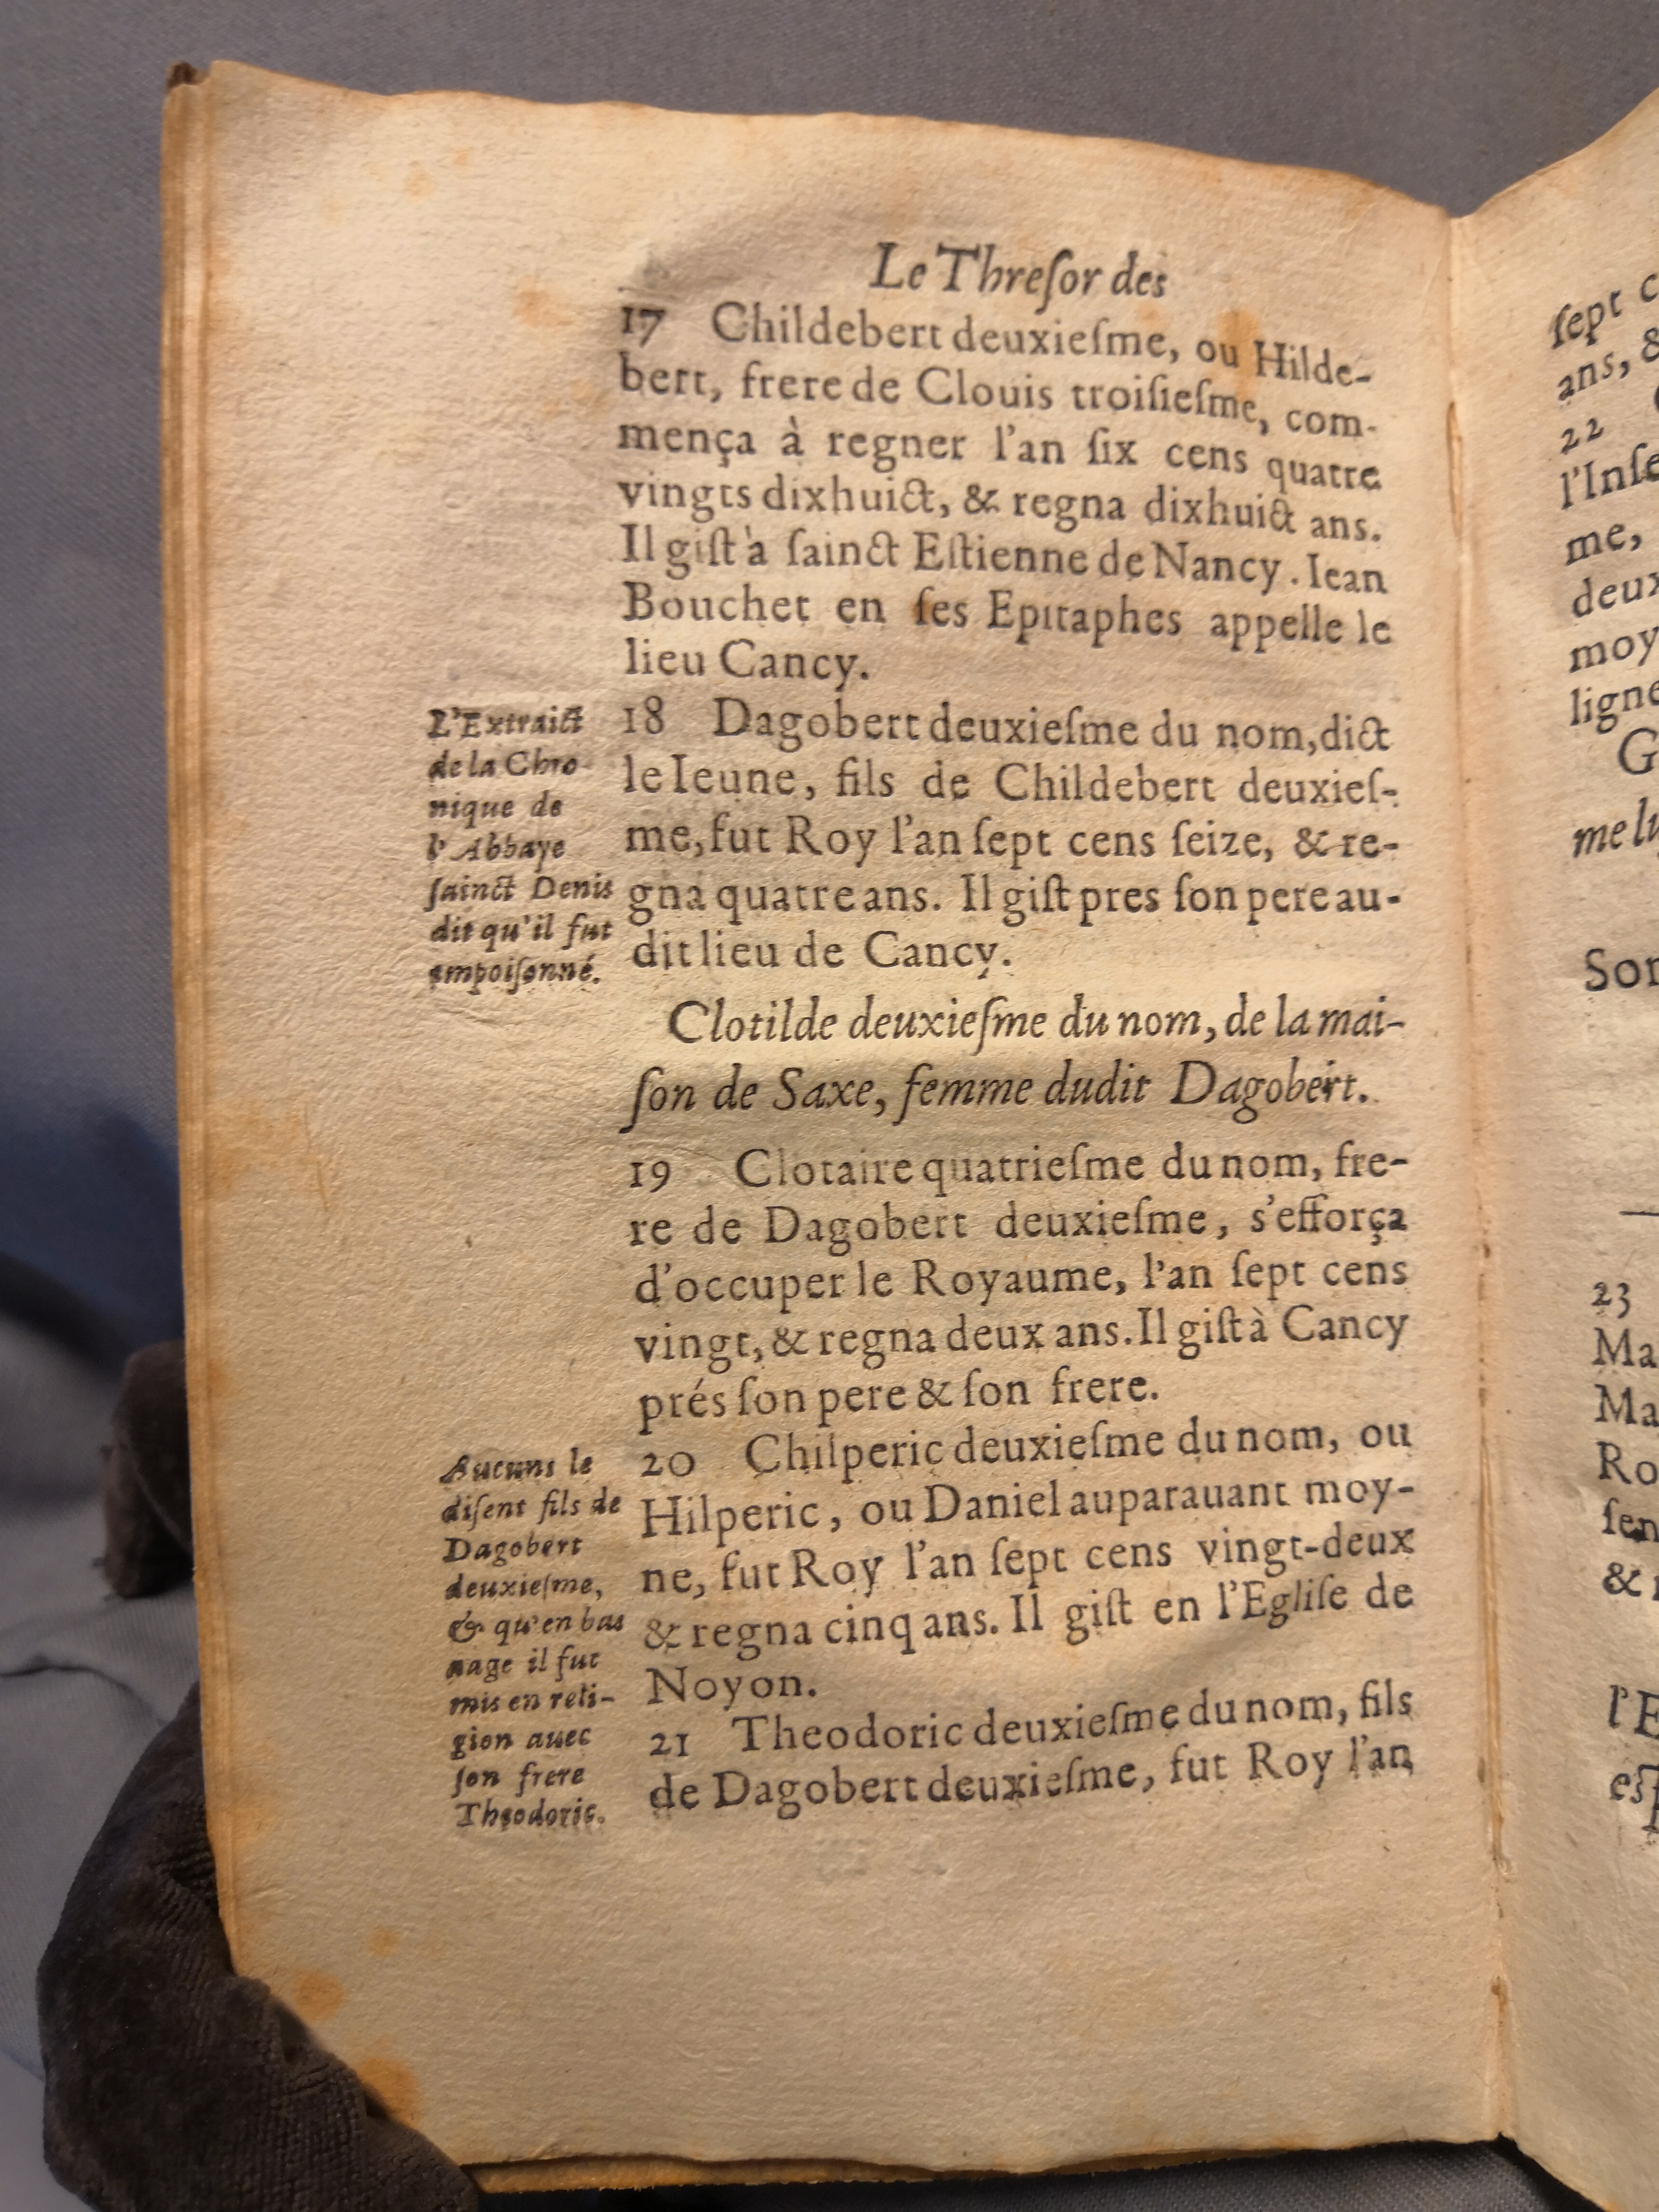 Le Threſor des
17 Childebert deuxieſme, ou Hilde-
bert, frere de Clouis troiſieſme, com-
mença à regner l'an ſix cens quatre
vingts dixhuict, & regna dixhuict ans.
Il giſt à ſainct Eſtienne de Nancy. Iean
Bouchet en ſes Epitaphes appelle le
lieu Cancy.
L'Extraict
de la Chro-
nique de
l'Abbaye
ſainct Denis
dit qu'il fut
empoiſonné.
18 Dagobert deuxieſme du nom, dict
le Ieune, fils de Childebert deuxieſ-
me, fut Roy l'an ſept cens ſeize, & re-
gna quatre ans. Il giſt pres ſon pere au-
dit lieu de Cancy.
Clotilde deuxieſme du nom, de la mai-
ſon de Saxe, femme dudit Dagobert.
19 Clotaire quatrieſme du nom, fre-
re de Dagobert deuxieſme, s'efforça
d'occuper le Royaume, l'an ſept cens
vingt, & regna deux ans. Il giſt à Cancy
prés ſon pere & ſon frere.
Aucuns le
diſent fils de
Dagobert
deuxieſme,
& qu'en bas
aage il fut
mis en reli-
gion auec
ſon frere
Theodoric.
20 Chilperic deuxieſme du nom, ou
Hilperic, ou Daniel auparauant moy-
ne, fut Roy l'an ſept cens vingt-deux
& regna cinq ans. Il giſt en l'Egliſe de
Noyon.
21 Theodoric deuxieſme du nom, fils
de Dagobert deuxieſme, fut Roy l'an
ſept
ans, &
22
me,
23
&